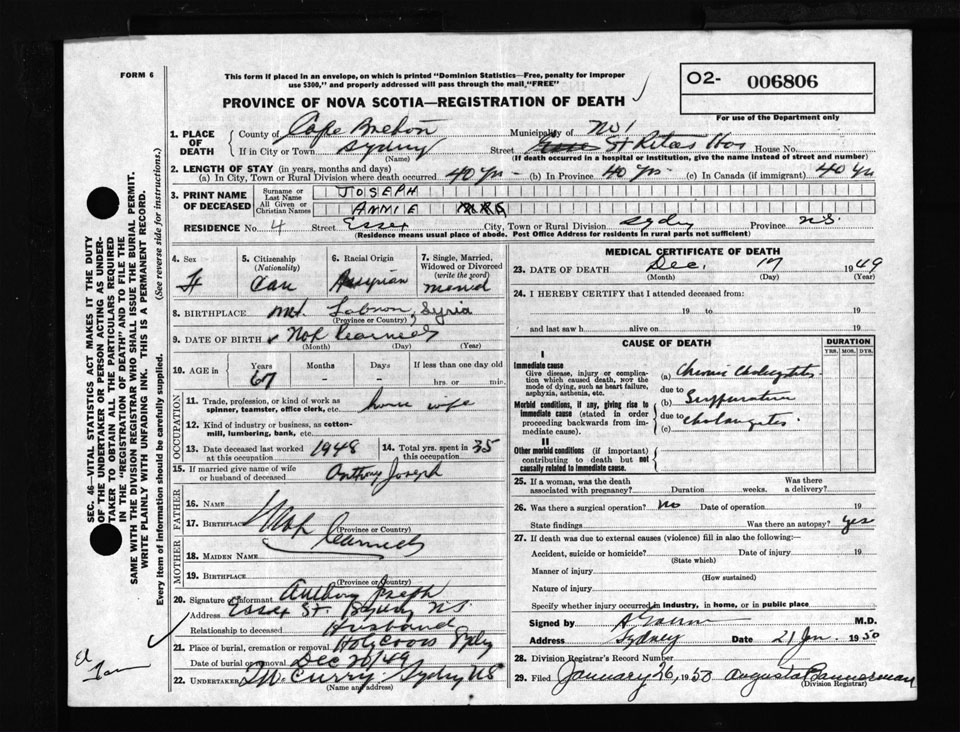 FORM 6
This form if placed in an envelope, on which is printed "Dominion Statistics—Free, penalty for improper
use $300," and properly addressed will pass through the mail, "FREE"
O2- 006806
For use of the Department only
PROVINCE OF NOVA SCOTIA—REGISTRATION OF DEATH
1. PLACE OF DEATH
County of Cape Breton Municipality of No 1
If in City or Town Sydney Street St Ritas Hos House No.
(Name) (If death occurred in a hospital or institution, give the name instead of street and number)
2. LENGTH OF STAY (in years, months and days)
(a) In City, Town or Rural Division where death occurred 40 yrs - (b) In Province 40 yrs - (c) In Canada (if immigrant) 40 yrs
3. PRINT NAME OF DECEASED
Surname or Last Name JOSEPH
All Given or Christian Names ANNIE
RESIDENCE No. 4 Street Essex City, Town or Rural Division Sydny Province N.S.
(Residence means usual place of abode. Post Office Address for residents in rural parts not sufficient)
4. Sex F
5. Citizenship (Nationality) Can
6. Racial Origin Assyrian
7. Single, Married, Widowed or Divorced (write the word) Married
8. BIRTHPLACE Mt. Lebnon, Syria
(Province or Country)
9. DATE OF BIRTH Not
(Month) (Day) (Year)
10. AGE in Years 67 Months - Days - If less than one day old
hrs. or min.
OCCUPATION
11. Trade, profession, or kind of work as spinner, teamster, office clerk, etc. house wife
12. Kind of industry or business, as cotton-mill, lumbering, bank, etc.
13. Date deceased last worked at this occupation 1948
14. Total yrs. spent in this occupation 35
15. If married give name of wife or husband of deceased Anthony Joseph
FATHER
16. Name
17. Birthplace Not
(Province or Country)
MOTHER
18. MAIDEN NAME
19. BIRTHPLACE
(Province or Country)
20. Signature of informant Anthony Joseph
Address Essex St. N.S.
Relationship to deceased Husband
21. Place of burial, cremation or removal Holy Cross Sydy
Date of burial or removal Dec 20/49
22. UNDERTAKER T. McCurry. Sydny NS
(Name and address)
MEDICAL CERTIFICATE OF DEATH
23. DATE OF DEATH Dec. 17 1949
(Month) (Day) (Year)
24. I HEREBY CERTIFY that I attended deceased from:
19 to 19
and last saw h alive on 19
CAUSE OF DEATH
DURATION
YRS. MOS. DYS.
I
Immediate cause
Give disease, injury or complication which caused death, NOT the mode of dying, such as heart failure, asphyxia, asthenia, etc.
(a) Chronic Cholecystitis
due to
Morbid conditions, if any, giving rise to immediate cause (stated in order proceeding backwards from immediate cause).
(b) Suppurative
due to
(c) cholangitis
II
Other morbid conditions (if important) contributing to death but not causally related to immediate cause.
25. If a woman, was the death associated with pregnancy? Duration weeks. Was there a delivery?
26. Was there a surgical operation? No Date of operation 19
State findings Was there an autopsy? yes
27. If death was due to external causes (violence) fill in also the following:—
Accident, suicide or homicide? Date of injury 19
(State which)
Manner of injury
(How sustained)
Nature of injury
Specify whether injury occurred in Industry, in home, or in public place
Signed by M.D.
Address Sydney Date 21 Jan. 1950
28. Division Registrar's Record Number
29. Filed January 26, 1950 Augusta Bannerman
(Division Registrar)
SEC. 46—VITAL STATISTICS ACT MAKES IT THE DUTY
OF THE UNDERTAKER OR PERSON ACTING AS UNDER-
TAKER TO OBTAIN ALL THE PARTICULARS REQUIRED
IN THE "REGISTRATION OF DEATH" AND TO FILE THE
SAME WITH THE DIVISION REGISTRAR WHO SHALL ISSUE THE BURIAL PERMIT.
WRITE PLAINLY WITH UNFADING INK. THIS IS A PERMANENT RECORD.
Every item of information should be carefully supplied. (See reverse side for instructions.)